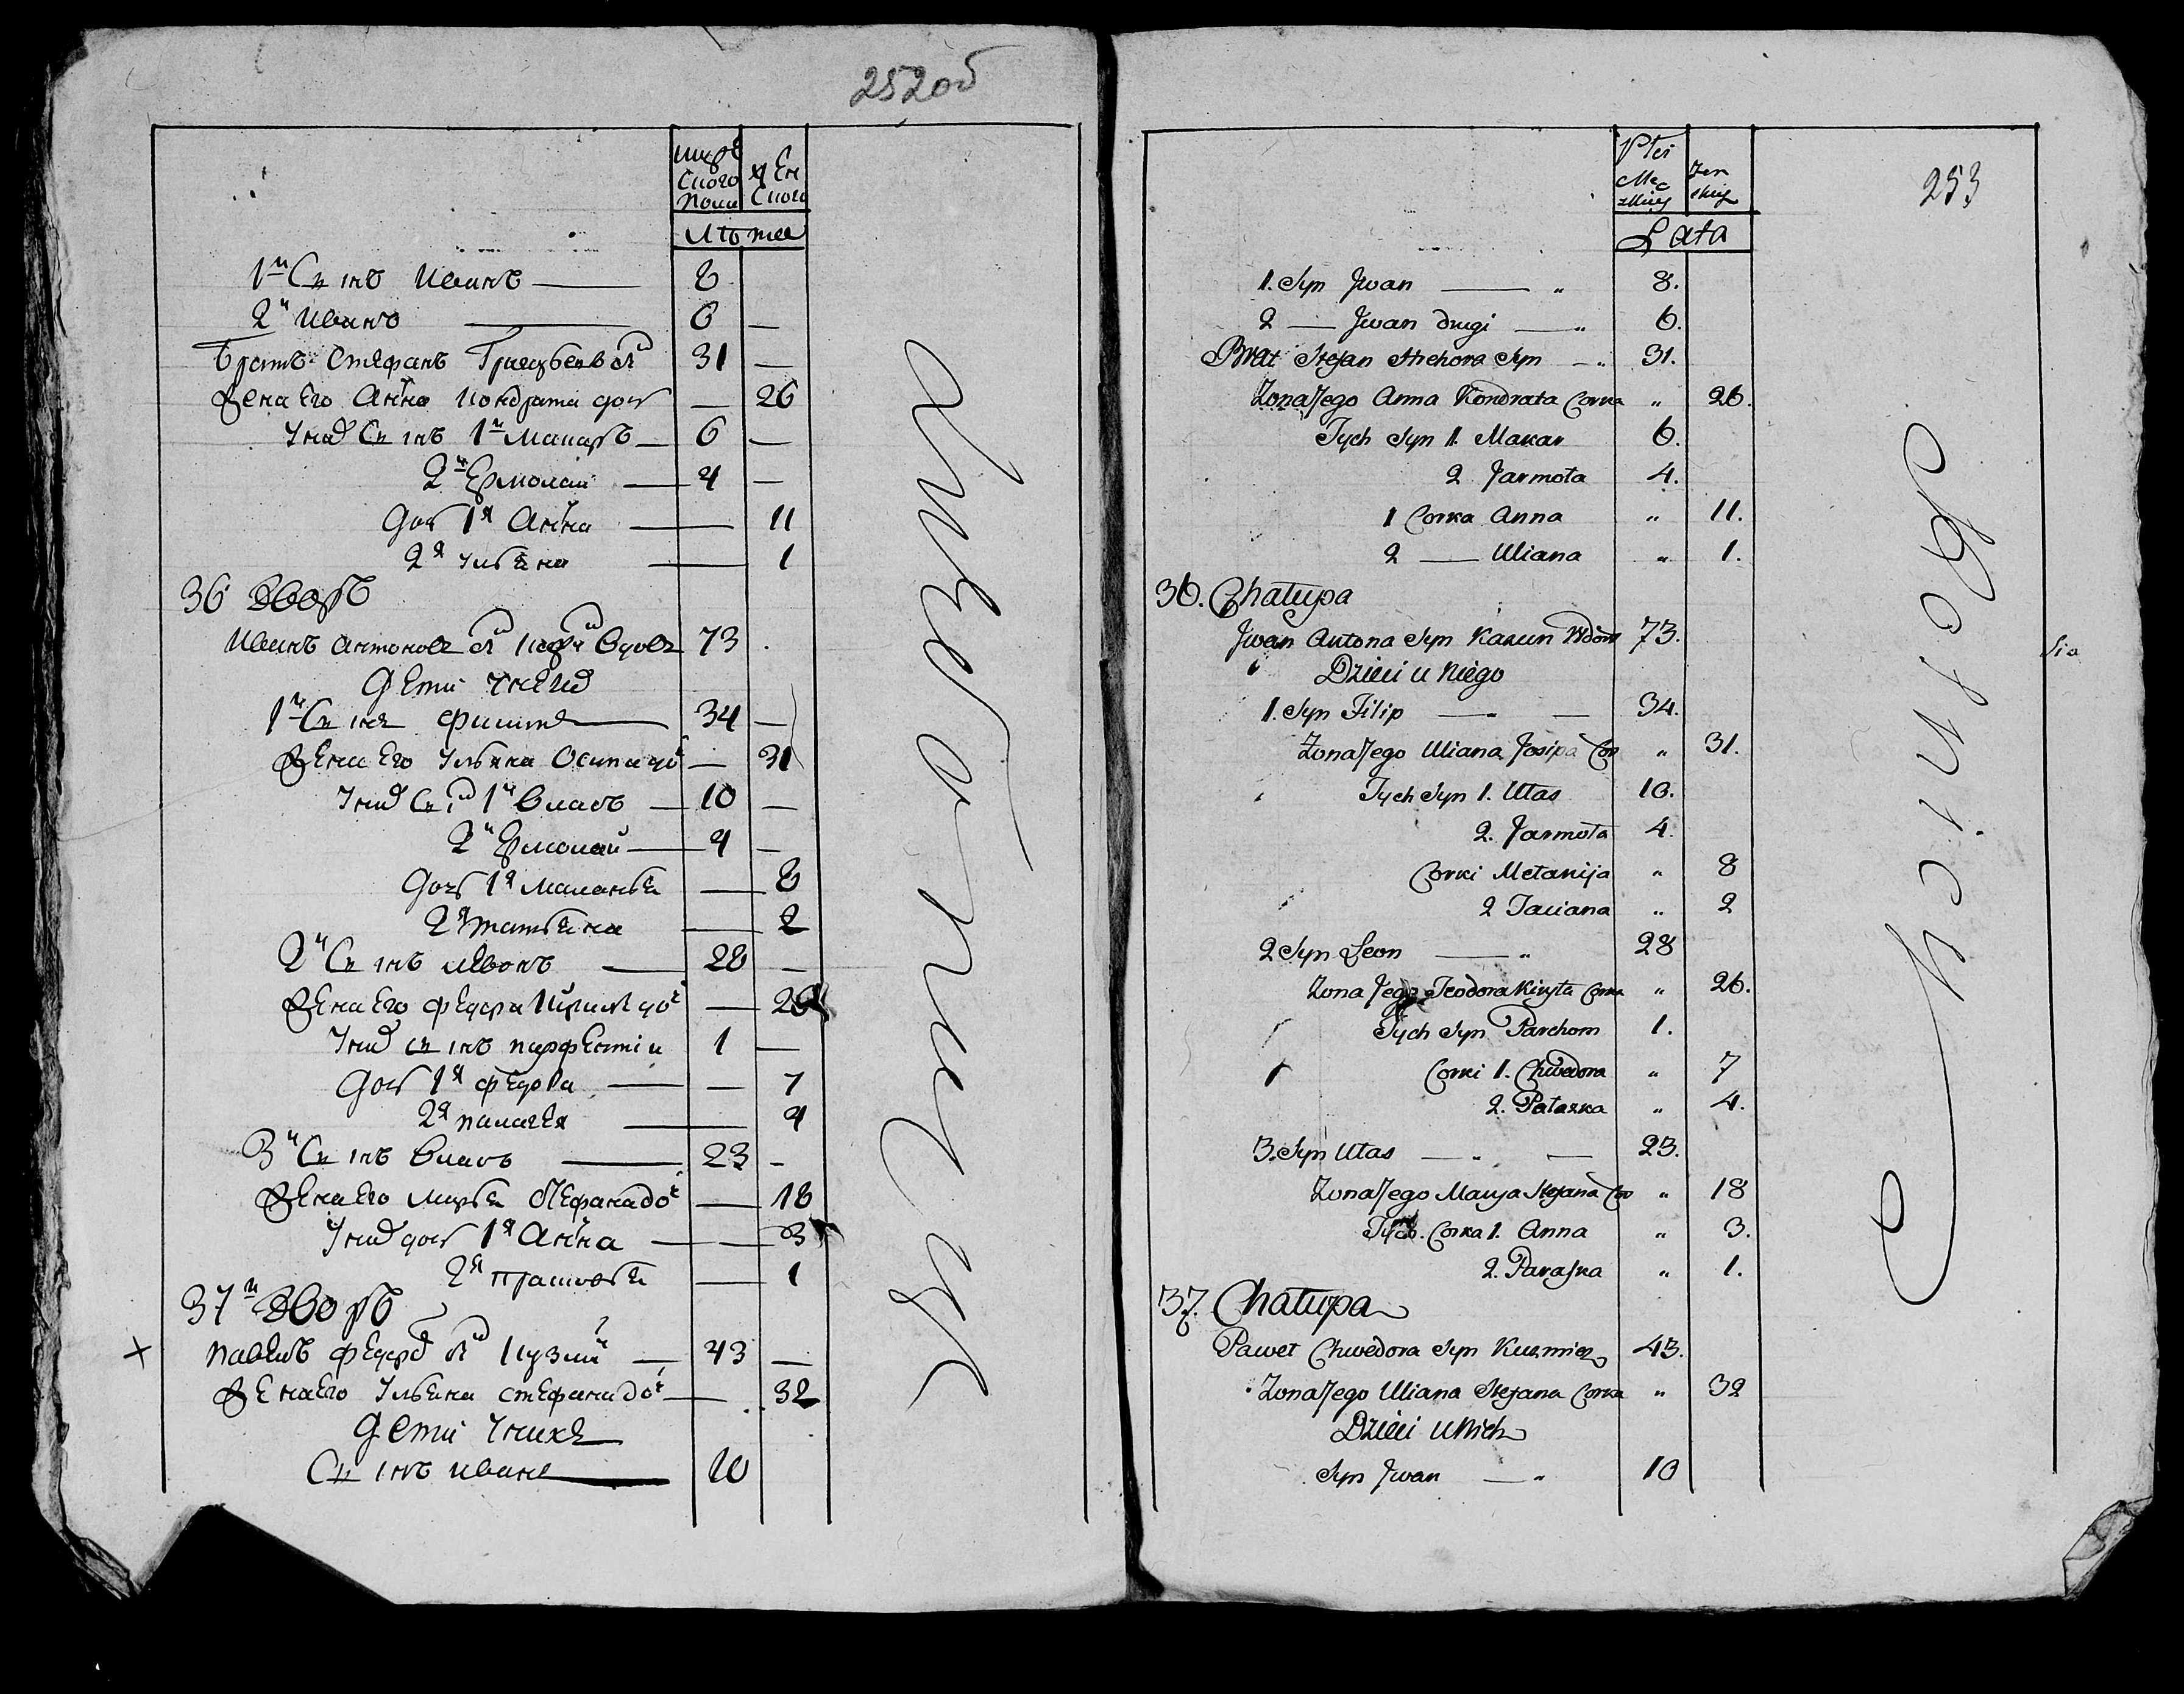 252об
мужеского полу
женского
лѣта
1й Сынъ Иванъ 8
2й Иванъ 6 —
Братъ Стефанъ Григорьевъ сынъ 31 —
Жена Его Анна Кондрата доч — 26
У них Сынъ 1й Макаръ 6 —
2й Ермолай 4 —
доч 1я Анна 11
2я Ульяна 1
36 Дворъ
Иванъ Антоновъ сынъ вдовъ 73
дети у него
1й Сынъ Филипъ 34 —
Жена Его Ульяна Осипа доч — 31
У них сын 1й Власъ 10 —
2й Ермолай 4 —
Доч 1я Маланья — 8
2я Татьяна — 2
2й Сынъ Левонъ 28 —
Жена Его Федора Кирилы доч — 26
У них сынъ Парфентій 1 —
Доч 1я Федора — 7
2я Палагея 4
3й Сынъ Власъ 23 —
Жена Его Марья Стефана доч — 18
У них доч 1я Анна — 3
2я Прасковья — 1
37й Дворъ
Павелъ Федора сынъ 43 —
Жена Его Ульяна Стефана доч — 32
дети у нихъ
Сынъ Иванъ 10
253
Płci
Męzkiey
Żenskiey
Lata
1. Syn Jwan — „ 8.
2 — Jwan drugi — „ 6.
Brat Stefan Hrehora Syn — „ 31.
Zona Jego Anna Kondrata Corka „ 26.
Tych Syn 1. Makar 6.
2 Jarmoła 4.
1 Corka Anna „ 11.
2 — Uliana „ 1.
36. Chałupa
Jwan Antona Syn Karun Wdow 73.
Dzieci u Niego
1. Syn Filip — „ — 34.
Zona Jego Uliana Josipa Cor „ 31.
Tych Syn 1. Ułas 10.
2. Jarmoła 4.
Corki Mełanija „ 8
2 Taciana „ 2
2 Syn Leon — „ 28
Zona Jego Teodora Kiryła Corka „ 26.
Tych Syn Parchom 1.
Corki 1. Chwedora „ 7
2. Pałazka „ 4.
3. Syn Ułas — „ — 23.
Zona Jego Marya Stefana Cor „ 18
Tych. Corka 1. Anna „ 3.
2. Paraska „ 1.
37. Chałupa
Paweł Chwedora Syn Kuzmicz 43.
Zona Jego Uliana Stefana Corka „ 32
Dzieci u Nich
Syn Jwan — „ 10